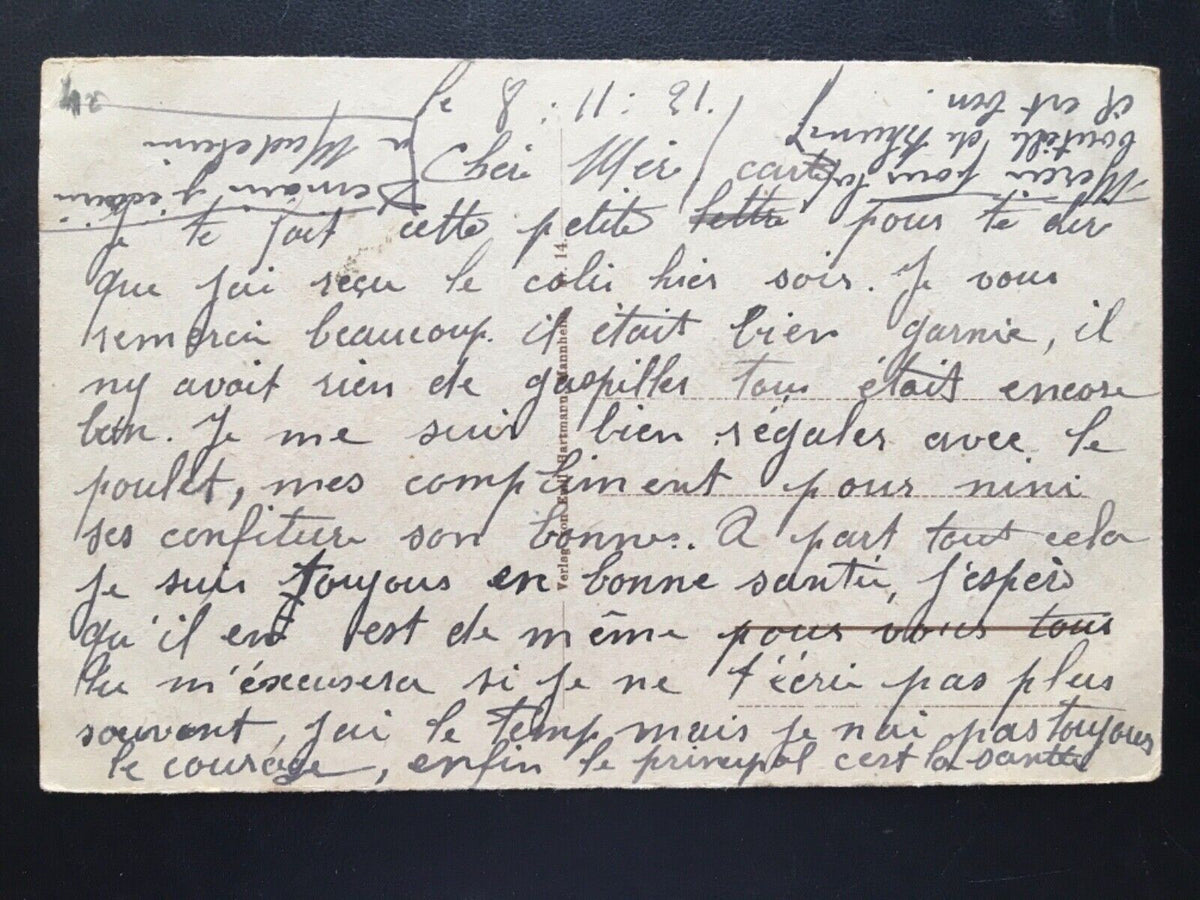 le 8 : 11 : 21.
Chèr Mèr
carte
Je te fait cette petite lettre pour te dir
que jai reçu le colis hier soir. Je vous
remerci beaucoup. il était bien garnie, il
ny avait rien de gaspiller tous était encore
bon. Je me suis bien régaler avec le
poulet, mes compliment pour nini
ses confiture son bonnes. A part tout cela
je suis toujous en bonne santé, j'espèr
qu'il en est de même pour vous tous
tu m'éxcusera si je ne t'écri pas plus
souvent, jai le temp mais je nai pas toujours
le courage, enfin le principal c'est la santé
Merci pour la
bouteille de Rhum
il est bon.
Demain j'écrirai
a Madeleine
Verlag von Emil Hartmann, Mannheim. 14.